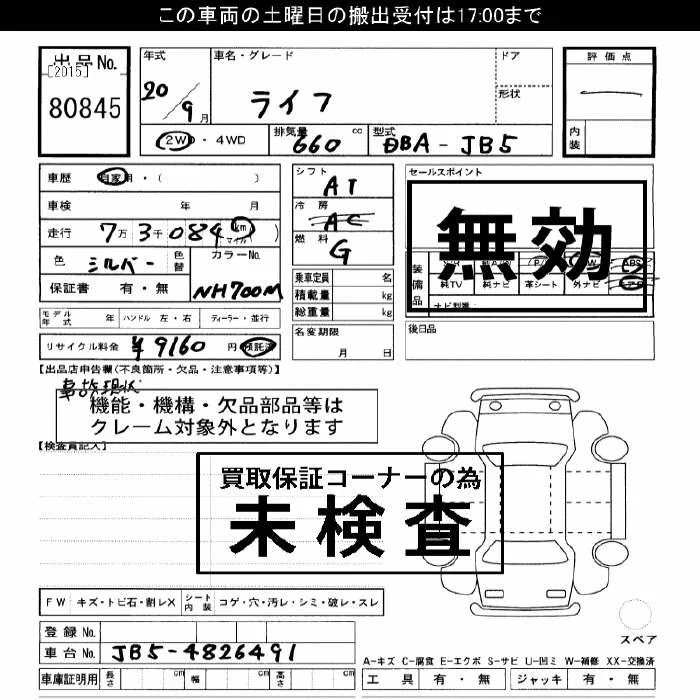 この車両の土曜日の搬出受付は17:00まで
出品No. [2015] 80845
年式 20/9月
車名・グレード ライフ
ドア
形状
評価点
内装
2WD・4WD
排気量 660 cc
型式 DBA-JB5
車歴 自家用・( )
車検 年 月
走行 7万3千084 km マイル
色 シルバー 色替 カラーNo. NH700M
保証書 有・無
シフト AT
冷房 AC
燃料 G
セールスポイント
無効
装備品
純TV 純ナビ 革シート 外ナビ
ナビ型番:
乗車定員 名
積載量 kg
総重量 kg
モデル年式 年 ハンドル 左・右 ディーラー・並行
名変期限 月 日
後日品
リサイクル料金 ¥9160 円 預託済
【出品店申告欄(不良箇所・欠品・注意事項等)】
事故現状
機能・機構・欠品部品等は
クレーム対象外となります
【検査員記入】
買取保証コーナーの為
未検査
FW キズ・トビ石・割レX シート内装 コゲ・穴・汚レ・シミ・破レ・スレ
登録No.
車台No. JB5-4826491
スペア
A-キズ C-腐食 E-エクボ S-サビ U-凹ミ W-補修 XX-交換済
車庫証明用 長さ cm 幅 cm 高さ cm
工具 有・無 ジャッキ 有・無